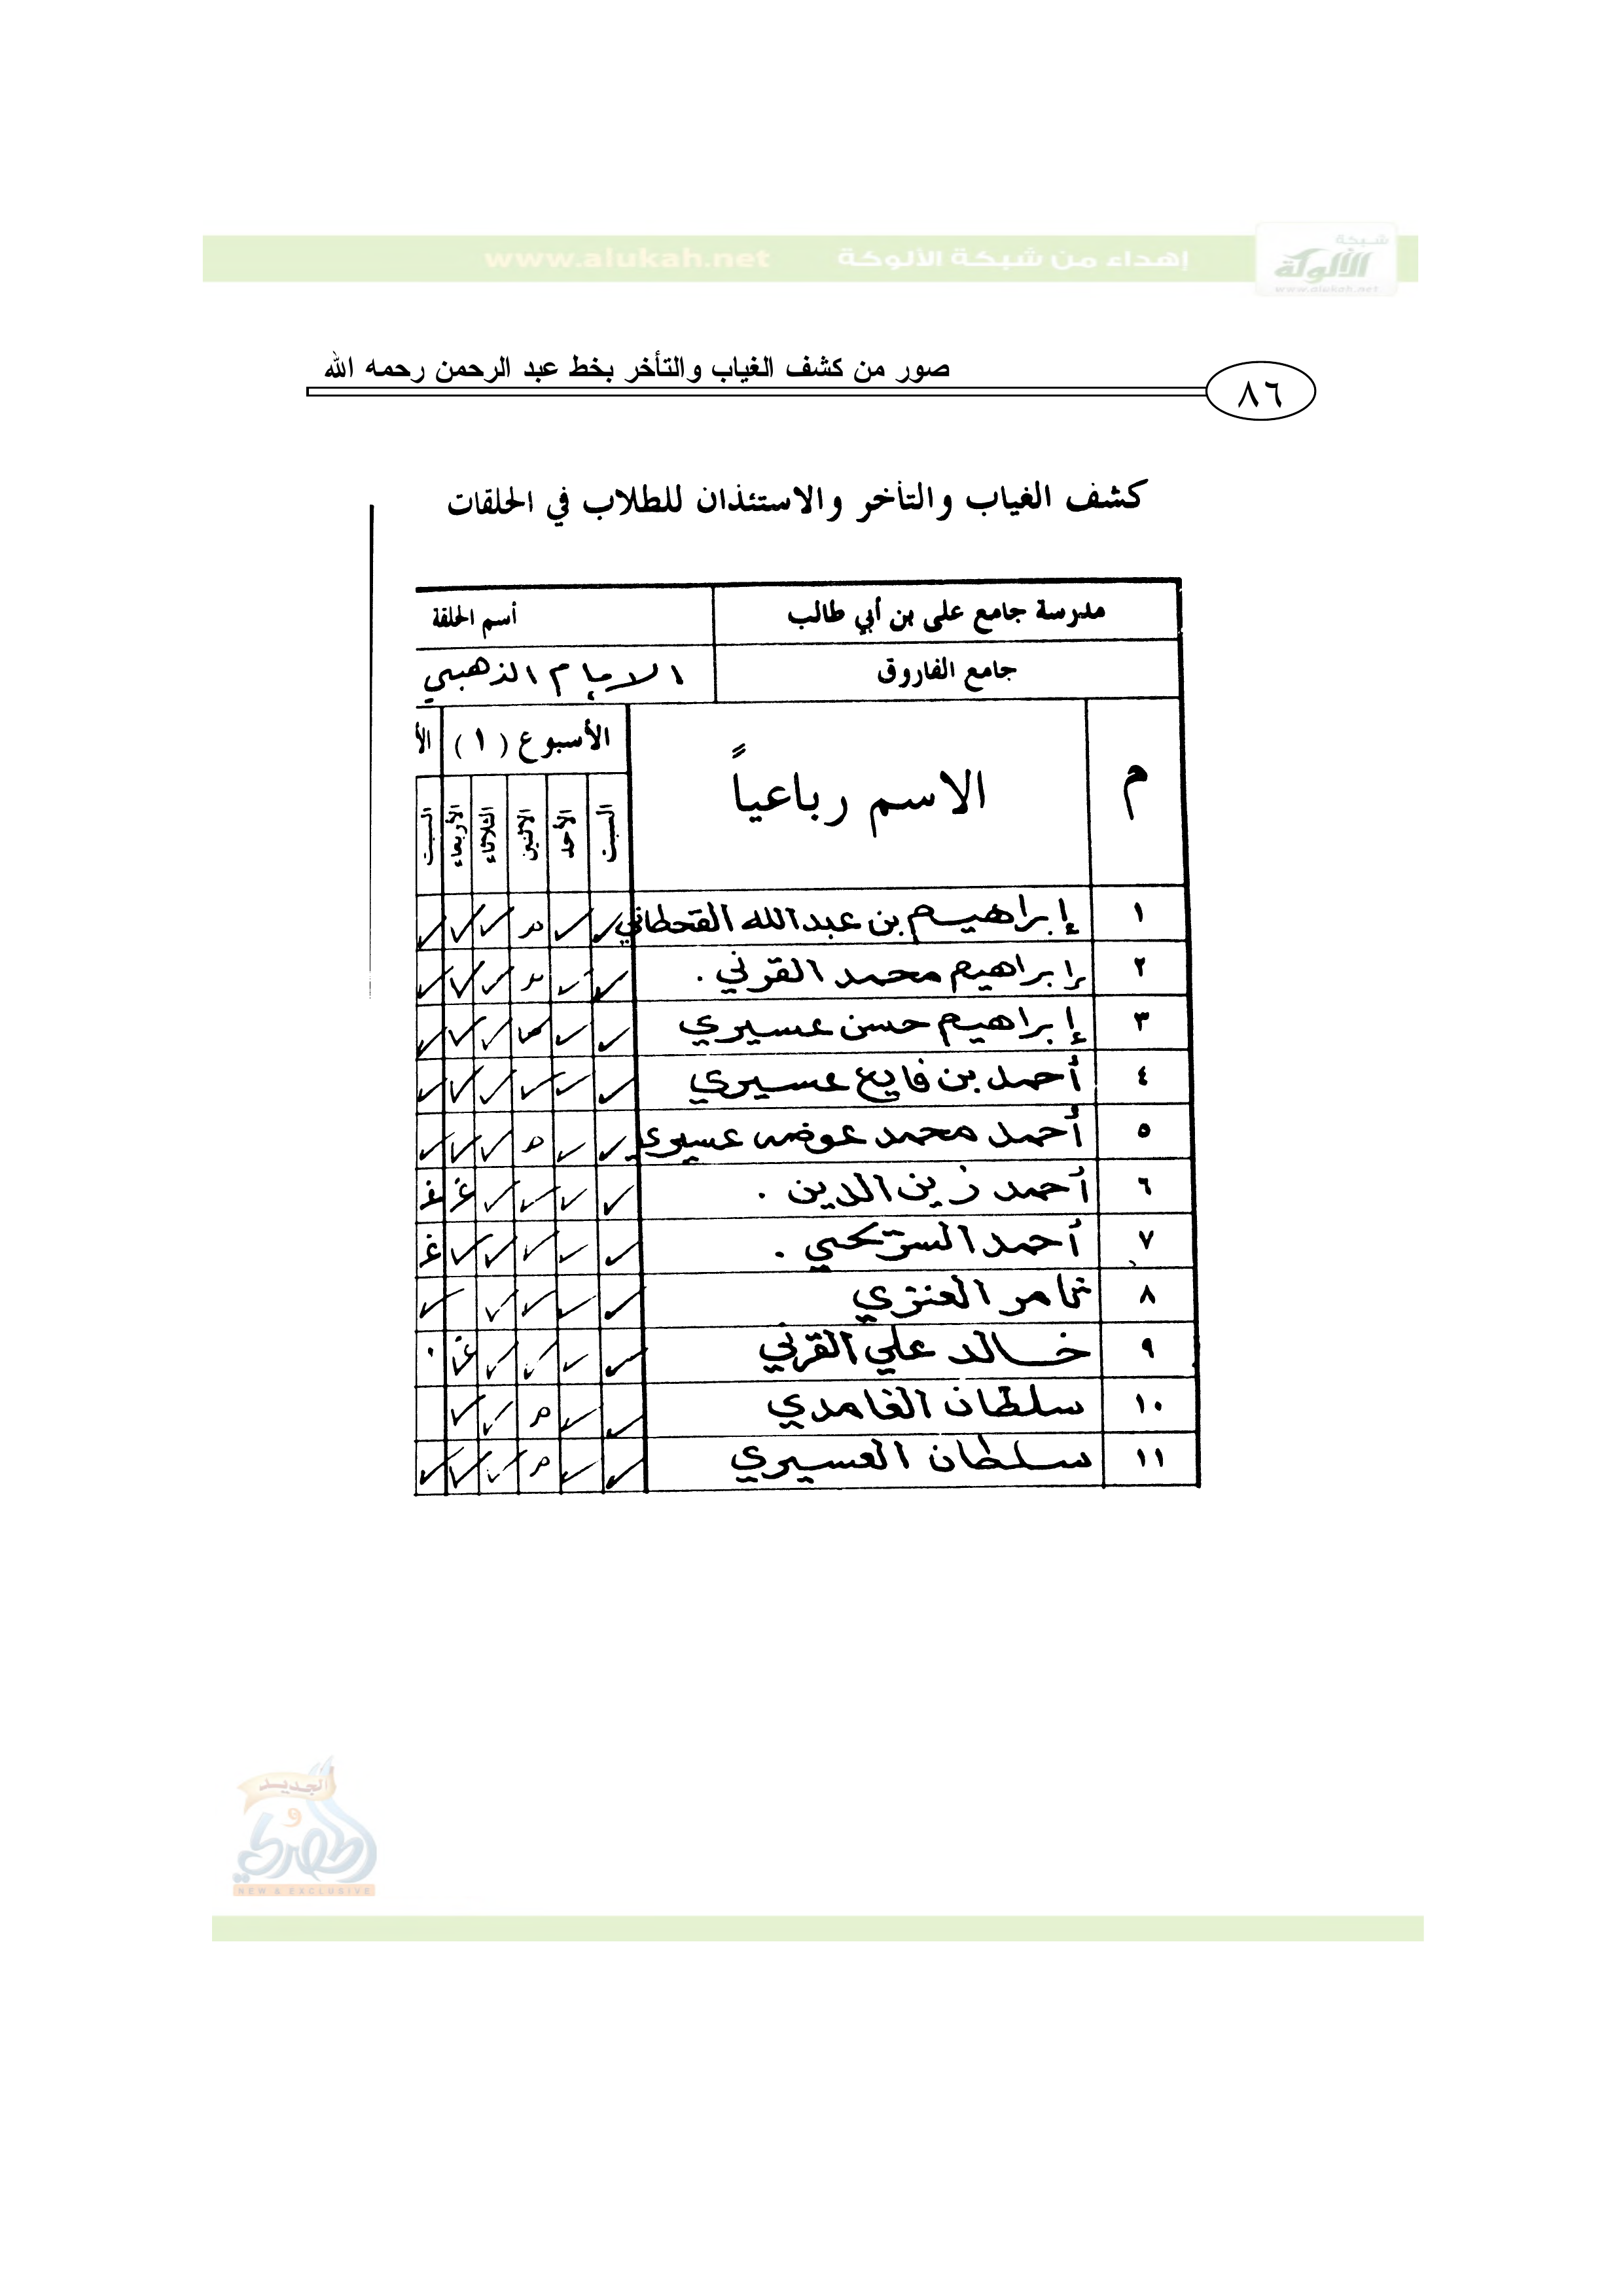 إهداء من شبكة الألوكة www.alukah.net
شبكة
الألوكة
www.alukah.net
٨٦ صور من كشف الغياب والتأخر بخط عبد الرحمن رحمه الله
كشف الغياب والتأخر والاستئذان للطلاب في الحلقات
مدرسة جامع على بن أبي طالب أسم الحلقة
جامع الفاروق الامام الذهبي
م الاسم رباعياً الأسبوع (١) الأ
السبت الأحد الاثنين الثلاثاء الأربعاء السبت
١ إبراهيم بن عبدالله القحطاني ✓ ✓ م ✓ ✓ ✓
٢ إبراهيم محمد القرني . ✓ ✓ م ✓ ✓ ✓
٣ إبراهيم حسن عسيري ✓ ✓ ✓ ✓ ✓
٤ أحمد بن فايع عسيري ✓ ✓ ✓ ✓ ✓ ✓
٥ أحمد محمد عوضه عسيري ✓ ✓ م ✓ ✓ ✓
٦ أحمد زين الدين . ✓ ✓ ✓ ✓ غ غ
٧ أحمد السريحي . ✓ ✓ ✓ ✓ ✓ غ
٨ ثامر العنزي ✓ ✓ ✓ ✓ ✓
٩ خالد علي القرني ✓ ✓ ✓ ✓ غ .
١٠ سلطان الغامدي ✓ ✓ م ✓ ✓
١١ سلطان العسيري ✓ ✓ م ✓ ✓ ✓
الجديد
و
الحصري
NEW & EXCLUSIVE